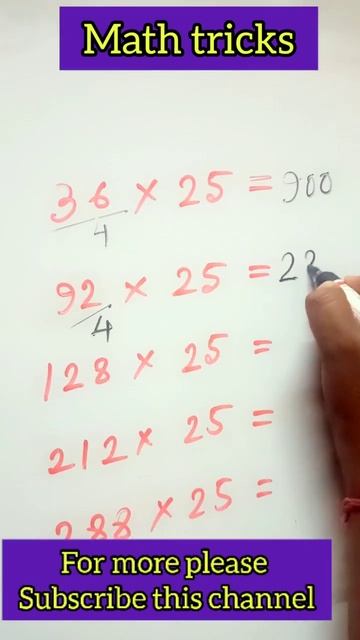 Math tricks
36 × 25 = 900
4
92 × 25 = 22
4
128 × 25 =
212 × 25 =
288 × 25 =
For more please
Subscribe this channel